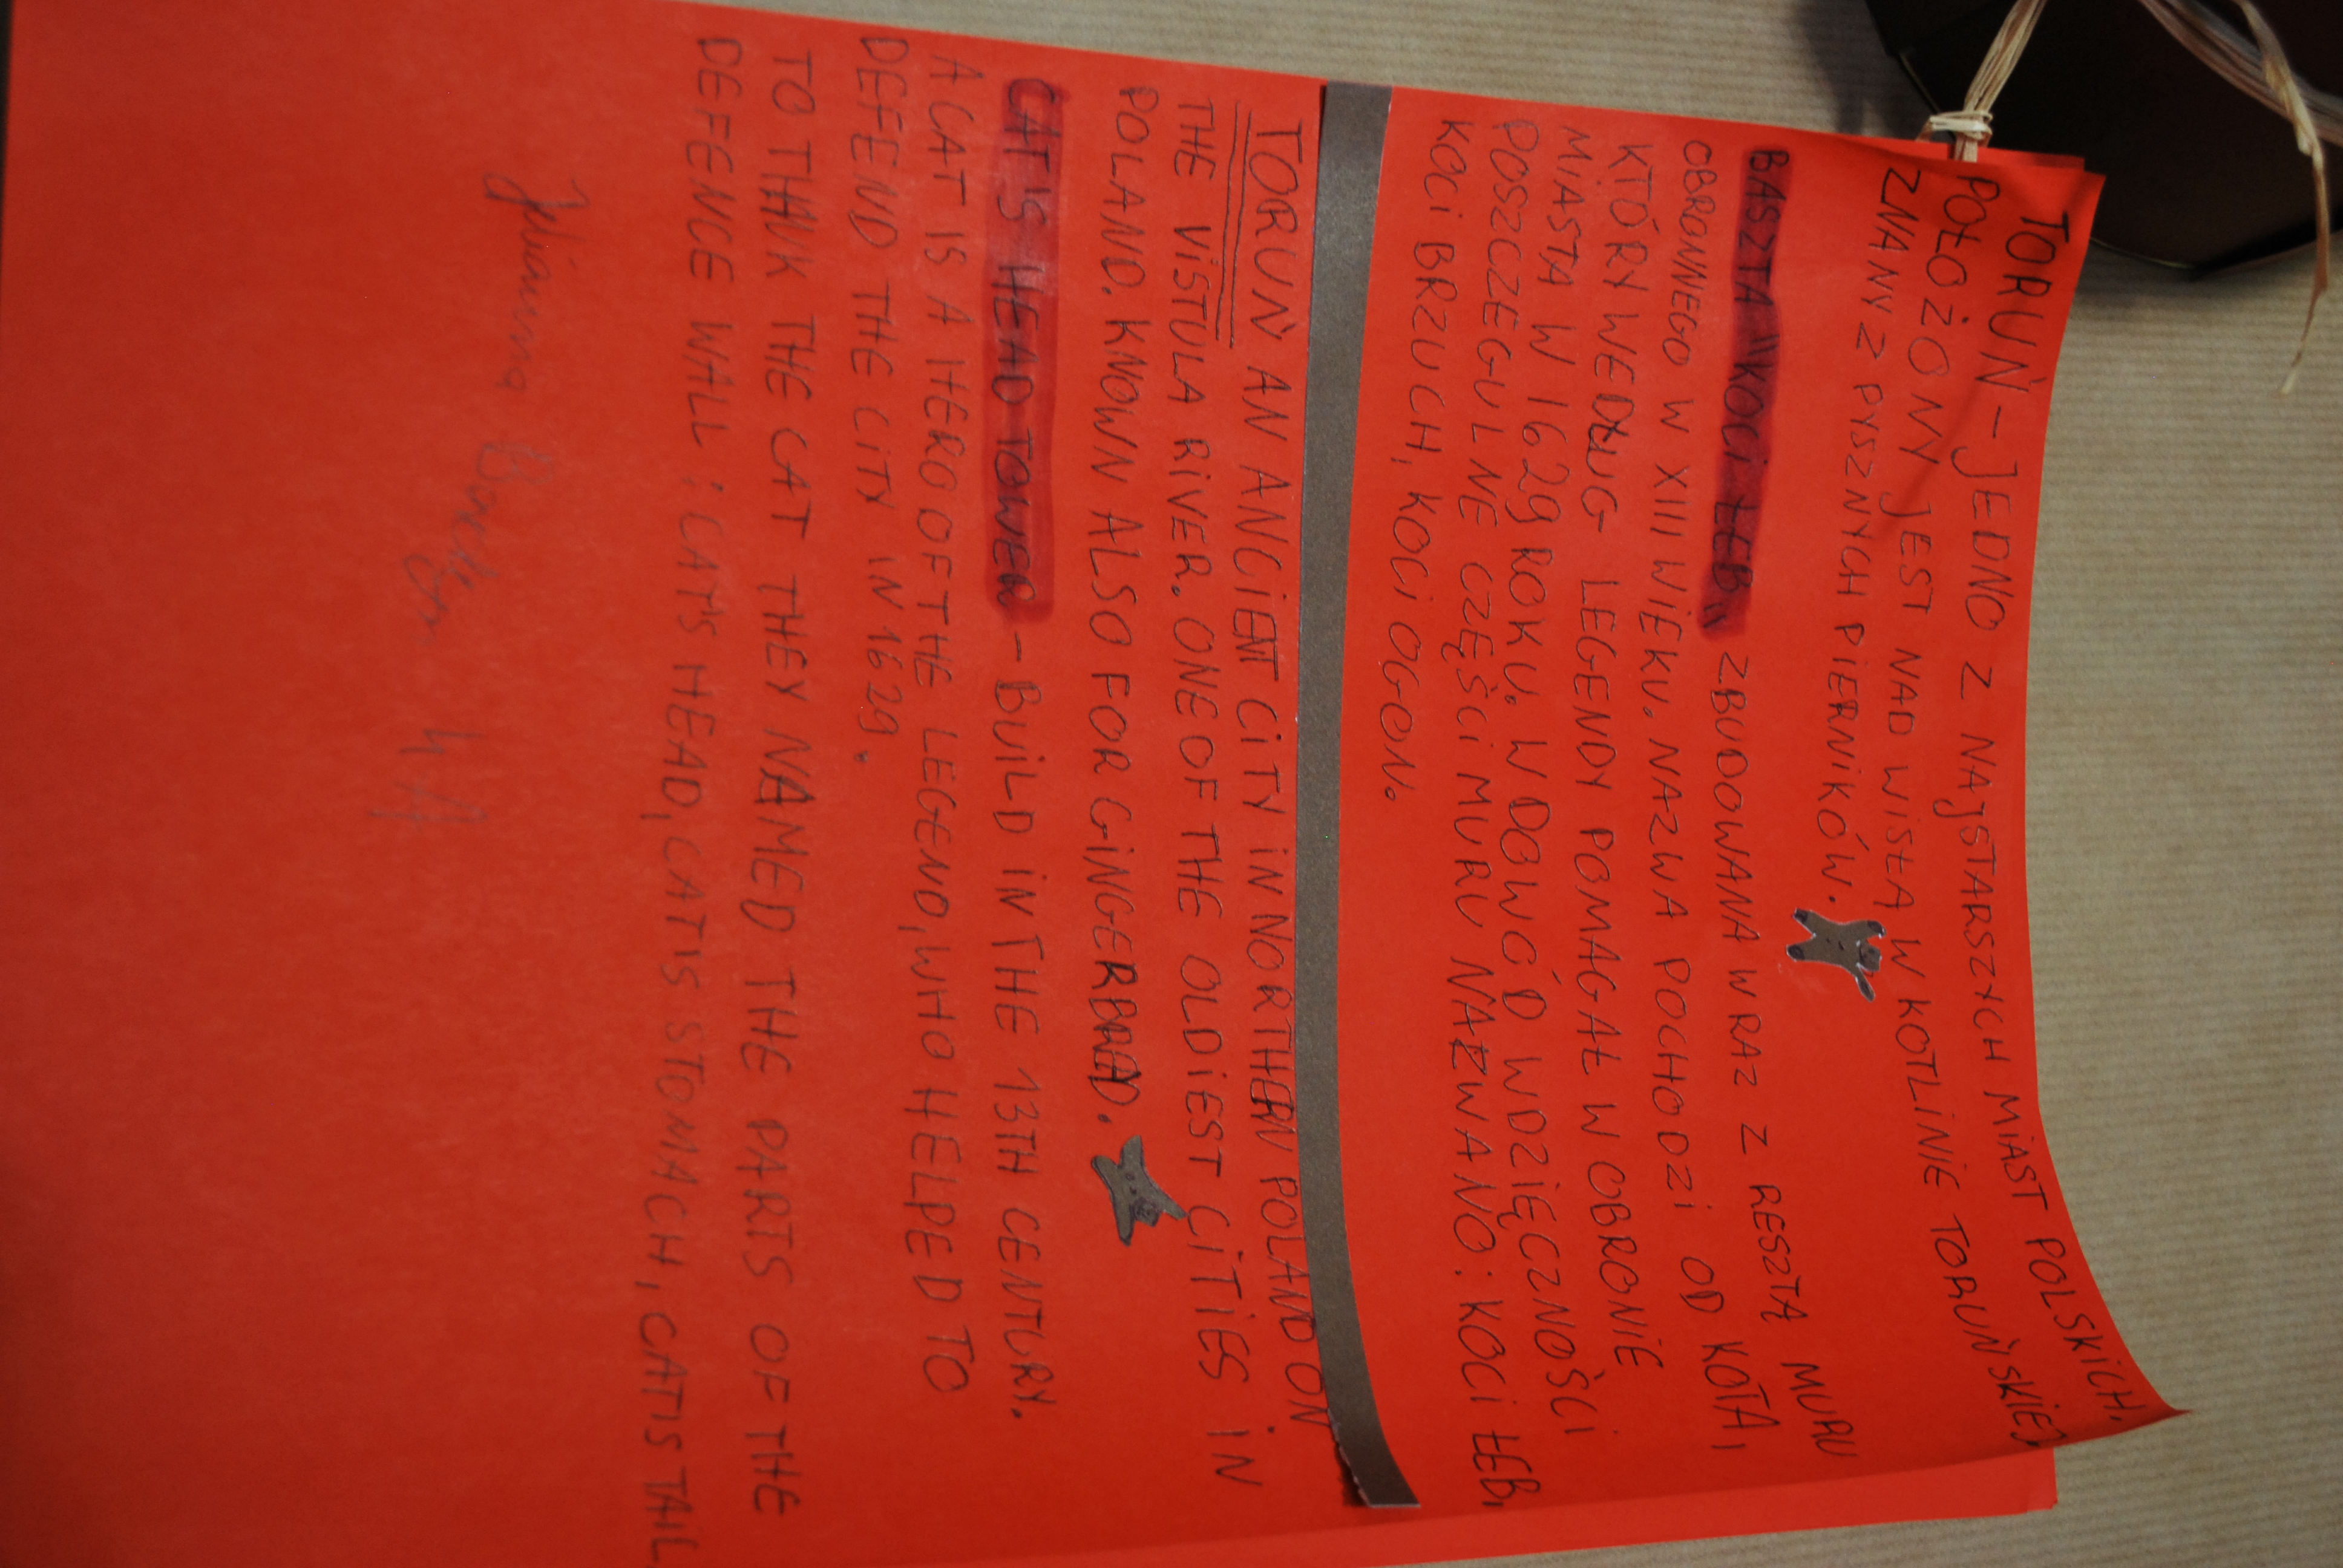 TORUŃ - JEDNO Z NAJSTARSZYCH MIAST POLSKICH,
POŁOŻONY JEST NAD WISŁĄ W KOTLINIE TORUŃSKIEJ
ZNANY Z PYSZNYCH PIERNIKÓW.
BASZTA "KOCI ŁEB" ZBUDOWANA WRAZ Z RESZTĄ MURU
OBRONNEGO W XIII WIEKU. NAZWA POCHODZI OD KOTA,
KTÓRY WEDŁUG LEGENDY POMAGAŁ W OBRONIE
MIASTA W 1629 ROKU. W DOWÓD WDZIĘCZNOŚCI
POSZCZEGULNE CZĘŚCI MURU NAZWANO: KOCI ŁEB,
KOCI BRZUCH, KOCI OGON.
TORUŃ AN ANCIENT CITY IN NORTHERN POLAND ON
THE VISTULA RIVER. ONE OF THE OLDIEST CITIES IN
POLAND. KNOWN ALSO FOR GINGERBREAD.
CAT'S HEAD TOWER - BUILD IN THE 13TH CENTURY.
A CAT IS A HERO OF THE LEGEND, WHO HELPED TO
DEFEND THE CITY IN 1629.
TO THANK THE CAT THEY NAMED THE PARTS OF THE
DEFENCE WALL: CAT'S HEAD, CAT'S STOMACH, CAT'S TAIL